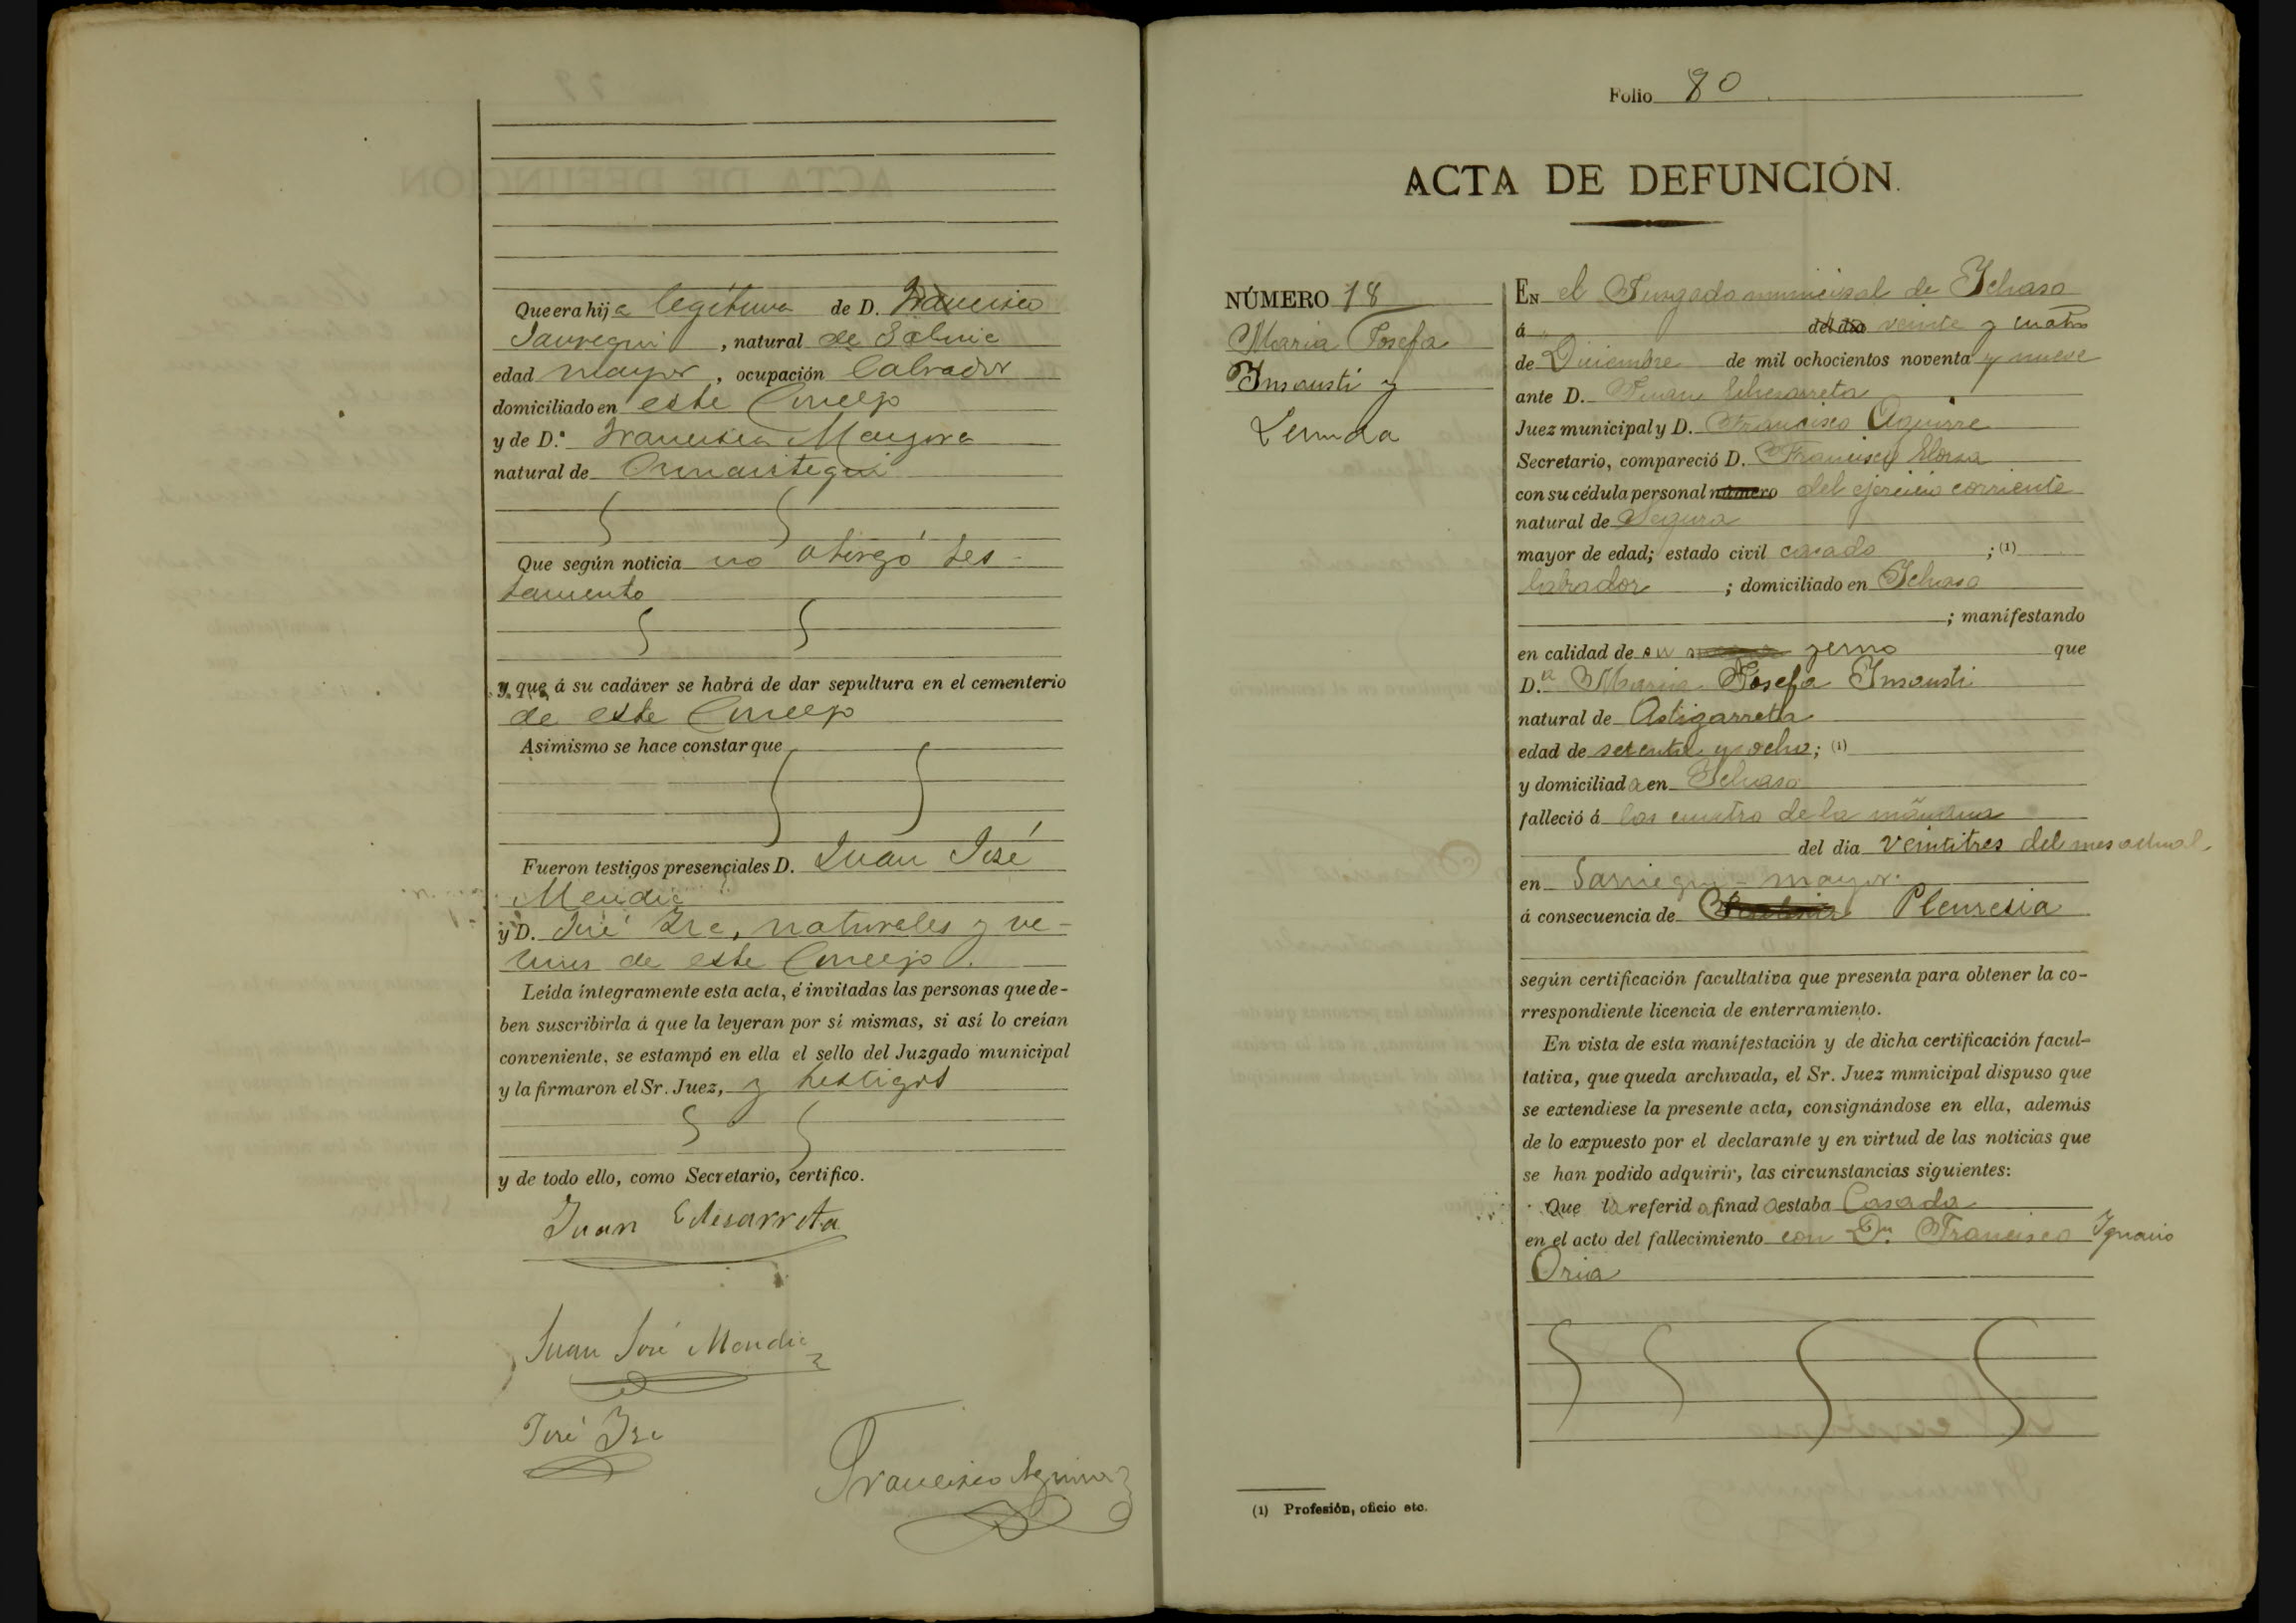 Que era hija legítima de D. Francisco
Jauregui, natural de
edad mayor, ocupación labrador
domiciliado en este Concejo
y de D.ª Francisca Mayora
natural de Ormaiztegui
Que según noticia no otorgó tes-
tamento
y que á su cadáver se habrá de dar sepultura en el cementerio
de este Concejo
Asimismo se hace constar que
Fueron testigos presenciales D. Juan José
Mendia
y D. José Iza, naturales y ve-
cinos de este Concejo.
Leída íntegramente esta acta, é invitadas las personas que de-
ben suscribirla á que la leyeran por sí mismas, si así lo creían
conveniente, se estampó en ella el sello del Juzgado municipal
y la firmaron el Sr. Juez, y testigos
y de todo ello, como Secretario, certifico.
Juan Echezarreta
Juan José Mendia
José Iza
Francisco Aguirre
Folio 80.
ACTA DE DEFUNCIÓN.
NÚMERO 18
Maria Josefa
Insausti y
EN el Juzgado municipal de Ichaso
á del dia veinte y cuatro
de Diciembre de mil ochocientos noventa y nueve
ante D. Juan Echezarreta
Juez municipal y D. Francisco Aguirre
Secretario, compareció D. Francisco Elorza
con su cédula personal número del ejercicio corriente
natural de Segura
mayor de edad; estado civil casado ; (1)
labrador ; domiciliado en Ichaso
; manifestando
en calidad de su yerno que
D.ª Maria Josefa Insausti
natural de Astigarreta
edad de setenta y ocho; (1)
y domiciliada en Ichaso
falleció á las cuatro de la mañana
del dia veintitres del mes actual.
en Sarriegui-mayor.
á consecuencia de Pleuresia
según certificación facultativa que presenta para obtener la co-
rrespondiente licencia de enterramiento.
En vista de esta manifestación y de dicha certificación facul-
tativa, que queda archivada, el Sr. Juez municipal dispuso que
se extendiese la presente acta, consignándose en ella, además
de lo expuesto por el declarante y en virtud de las noticias que
se han podido adquirir, las circunstancias siguientes:
Que la referida finada estaba Casada
en el acto del fallecimiento con Dn. Francisco Ignacio
Oria
(1) Profesión, oficio etc.